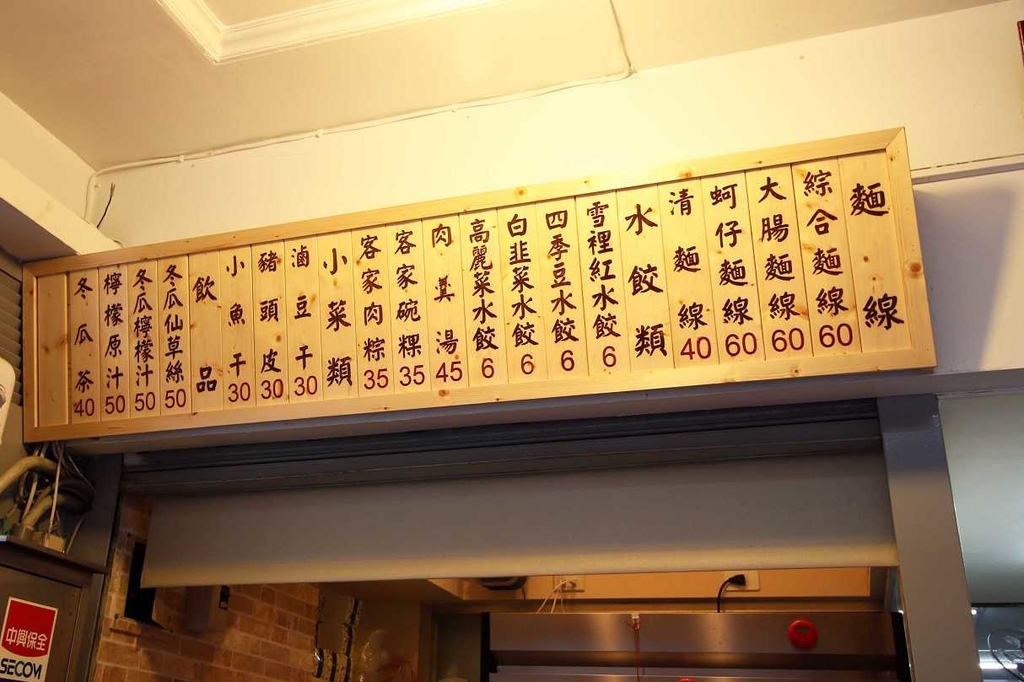 麵線
綜合麵線60
大腸麵線60
蚵仔麵線60
清麵線40
水餃類
雪裡紅水餃6
四季豆水餃6
白韭菜水餃6
高麗菜水餃6
肉羹湯45
客家碗粿35
客家肉粽35
小菜類
滷豆干30
豬頭皮30
小魚干30
飲品
冬瓜仙草絲50
冬瓜檸檬汁50
檸檬原汁50
冬瓜茶40
中興保全
SECOM